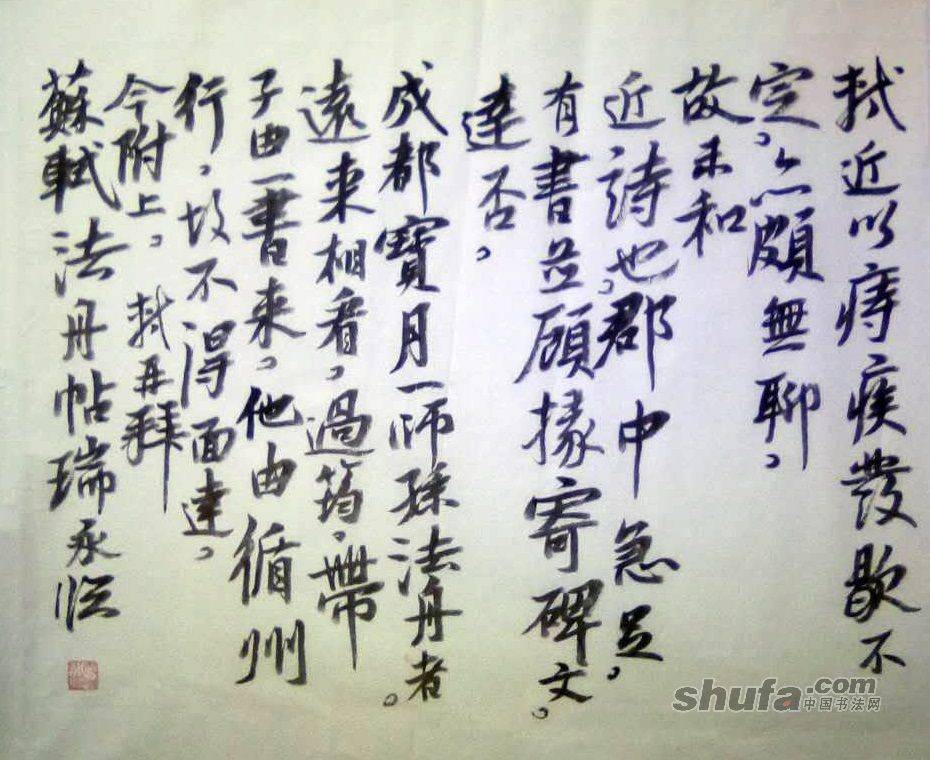 軾近以痔疾發歇不
定。亦頗無聊，
故未和
近詩也。郡中急足。
有書並顧掾寄碑文。
達否。
成都寶月一師孫法丹者。
遠來相看，過筠，帶
子由一書來。他由循州
行，故不得面達，
今附上。軾再拜
蘇軾法丹帖瑞永臨
shufa.com
中国书法网